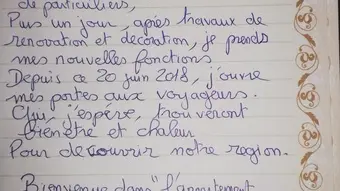 de particuliers,
Puis un jour, après travaux de
renovation et decoration, je prends
mes nouvelles fonctions.
Depuis ce 20 juin 2018, j'ouvre
mes portes aux voyageurs.
Qui, j'espère, trouveront
bien être et chaleur
Pour decouvrir notre region.
Bienvenue dans "l'appartement